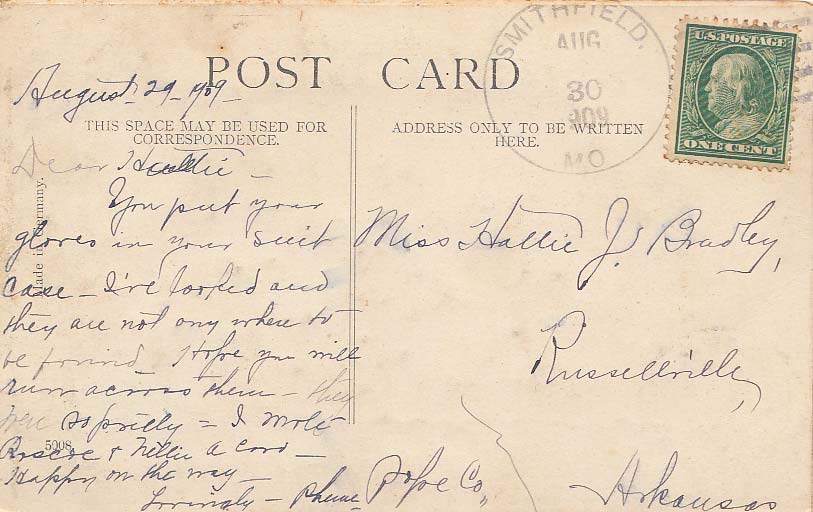 POST CARD
August 29 - 1909 -
THIS SPACE MAY BE USED FOR
CORRESPONDENCE.
Dear Hallie -
You put your
gloves in your suit
case - I've looked and
they are not any where to
be found Hope you will
run across them - they
were so pretty = I wrote
Roscoe & Nellie a card -
Happy on the way -
Lovingly -
Made in Germany.
5008
SMITHFIELD,
AUG
30
1909
MO
U.S. POSTAGE
ONE CENT
ADDRESS ONLY TO BE WRITTEN
HERE.
Miss Hallie J. Bradley,
Russellville,
Pope Co,,
Arkansas